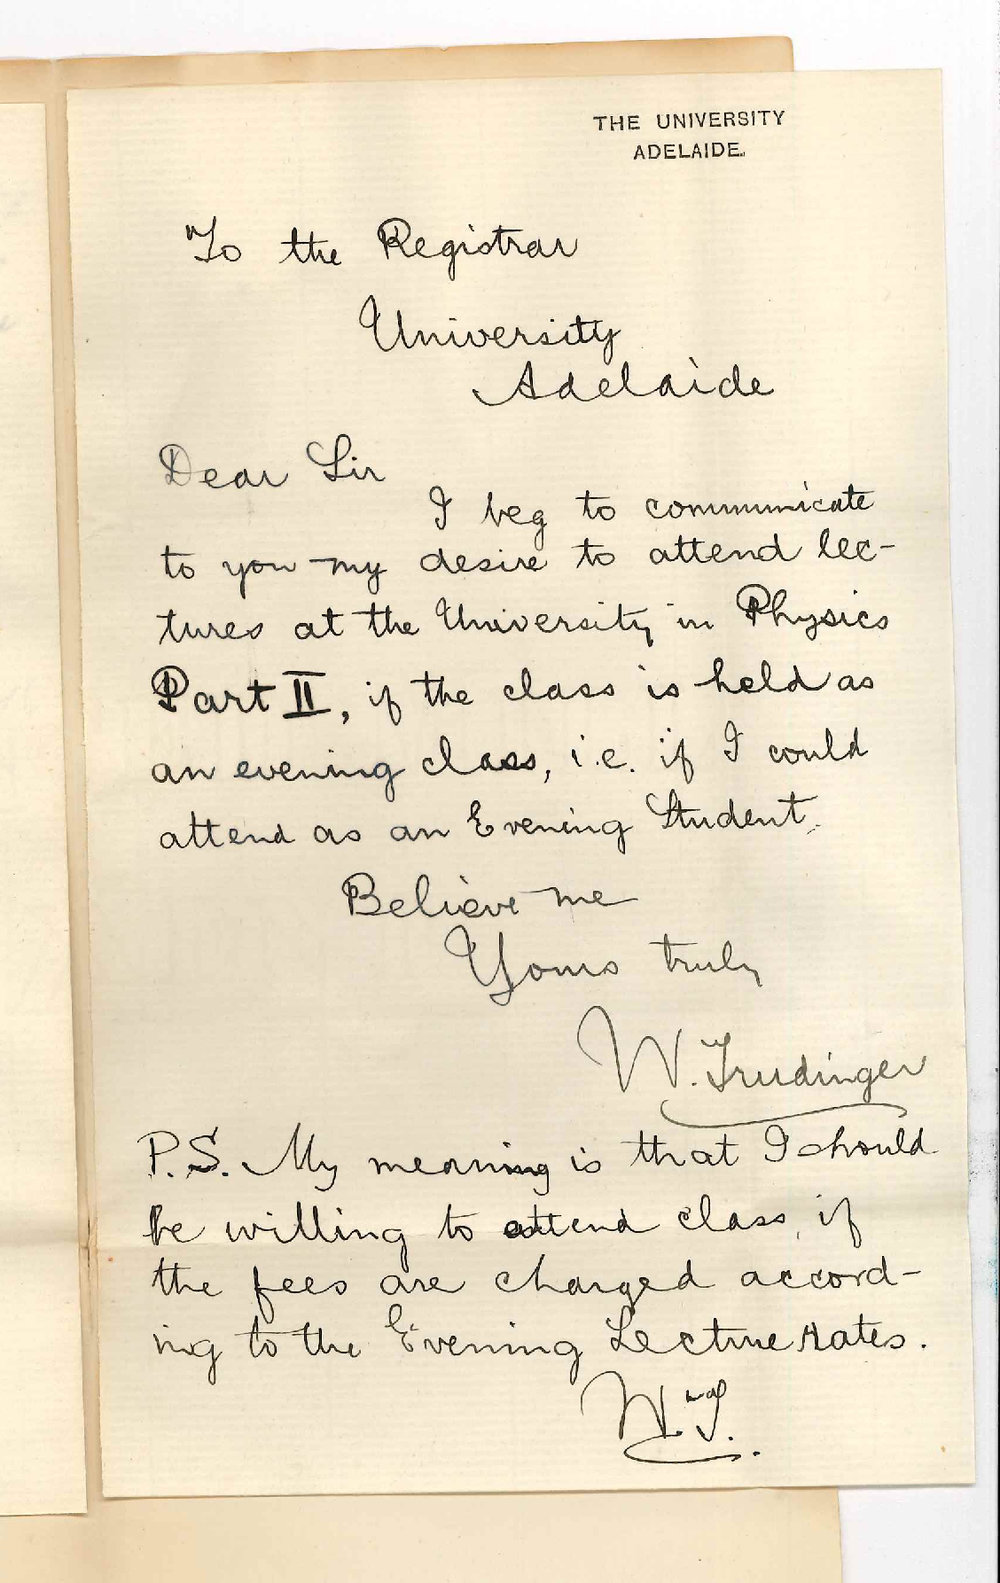 THE UNIVERSITY
ADELAIDE.
To the Registrar
University
Adelaide
Dear Sir
I beg to communicate
to you my desire to attend lec-
tures at the University in Physics
Part II, if the class is held as
an evening class, i.e. if I could
attend as an Evening Student.
Believe me
Yours truly
W. Trudinger
P.S. My meaning is that I should
be willing to attend class, if
the fees are charged accord-
ing to the Evening Lecture Rates.
W.T.